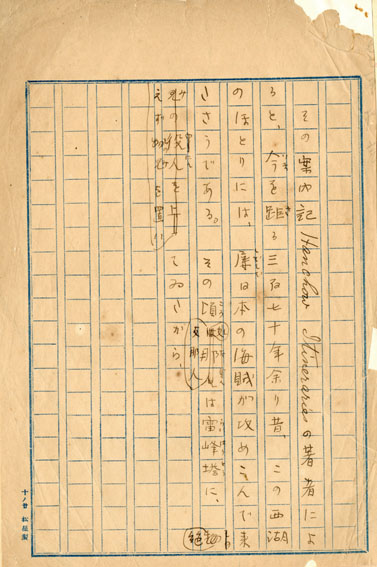 その案内記 Hanchow Itineraries の著者によ
ると、今を距る三百七十年余り昔、この西湖
のほとりには、屡日本の海賊が攻めこんで来
たさうである。その頃支那人は雷峰塔に、絶
えず物見を置い
てゐたから、
十ノ廿 松屋製